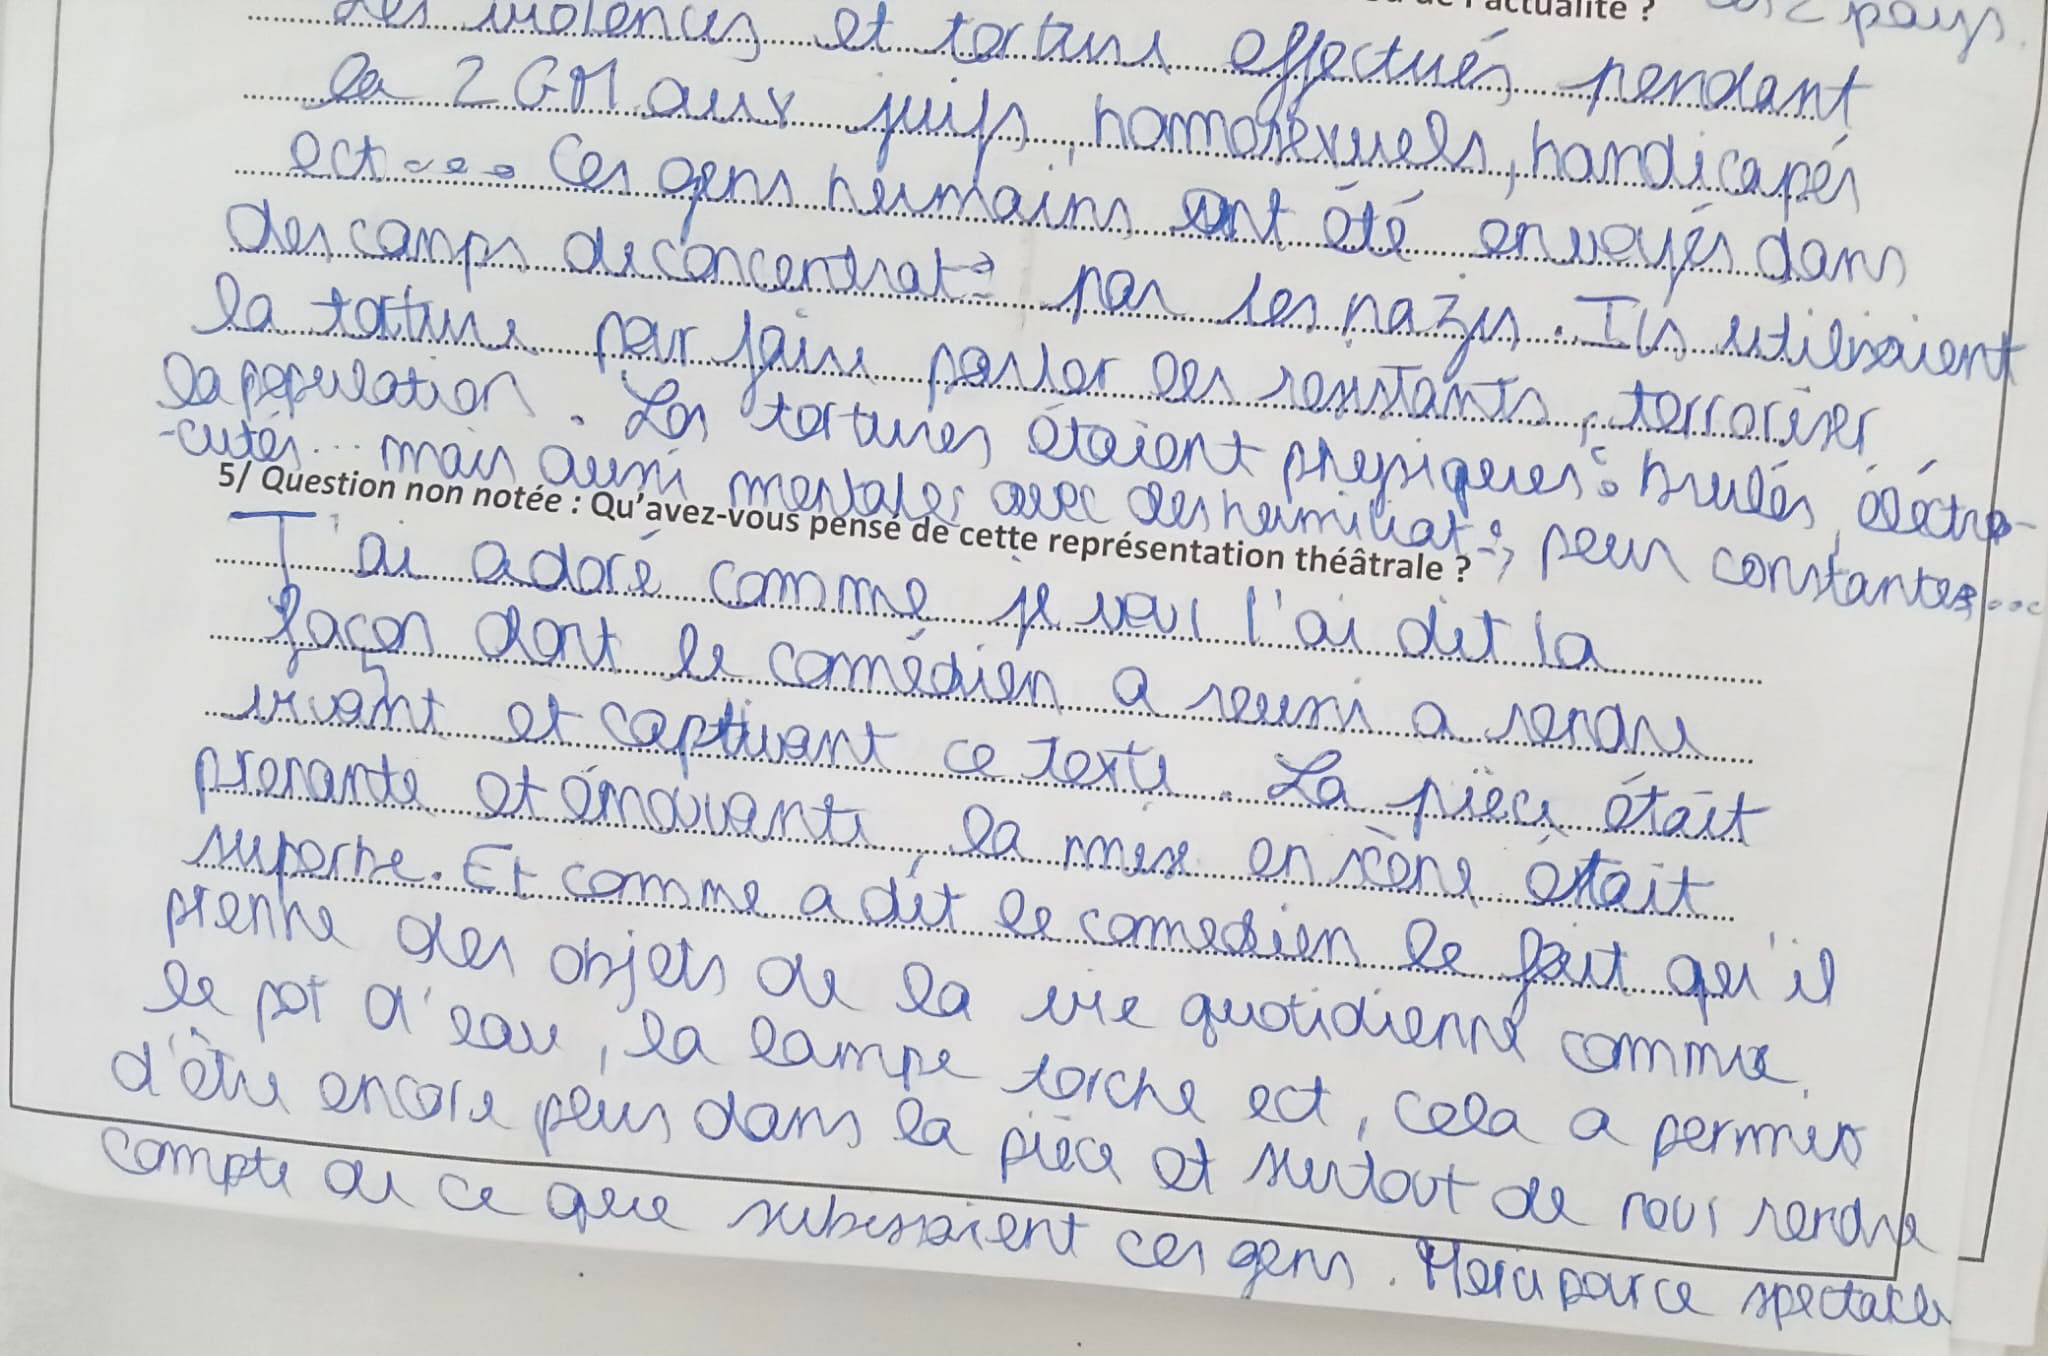 de l'actualité ?
ces 2 pays.
Les violences et torture effectués pendant
la 2GM aux juifs, homosexuels, handicapés
ect.... Ces gens humains ont été envoyés dans
des camps de concentrat° par les nazis. Ils utilisaient
la torture pour faire parler les resistants, terroriser
la population. Les tortures étaient physiques : brulés, éléctro-
-cutés... mais aussi mentales avec des humiliat°, peur constantes...
5/ Question non notée : Qu'avez-vous pensé de cette représentation théâtrale ?
J'ai adoré comme je vous l'ai dit la
façon dont le comédien a reussi a rendre
vivant et captivant ce texte. La pièce était
prenante et émouvante, la mise en scène était
superbe. Et comme a dit le comedien le fait qu'il
prenne des objets de la vie quotidienne comme
le pot d'eau, la lampe torche ect, cela a permis
d'être encore plus dans la pièce et surtout de nous rendre
compte de ce que subissaient ces gens. Merci pour ce spectacle